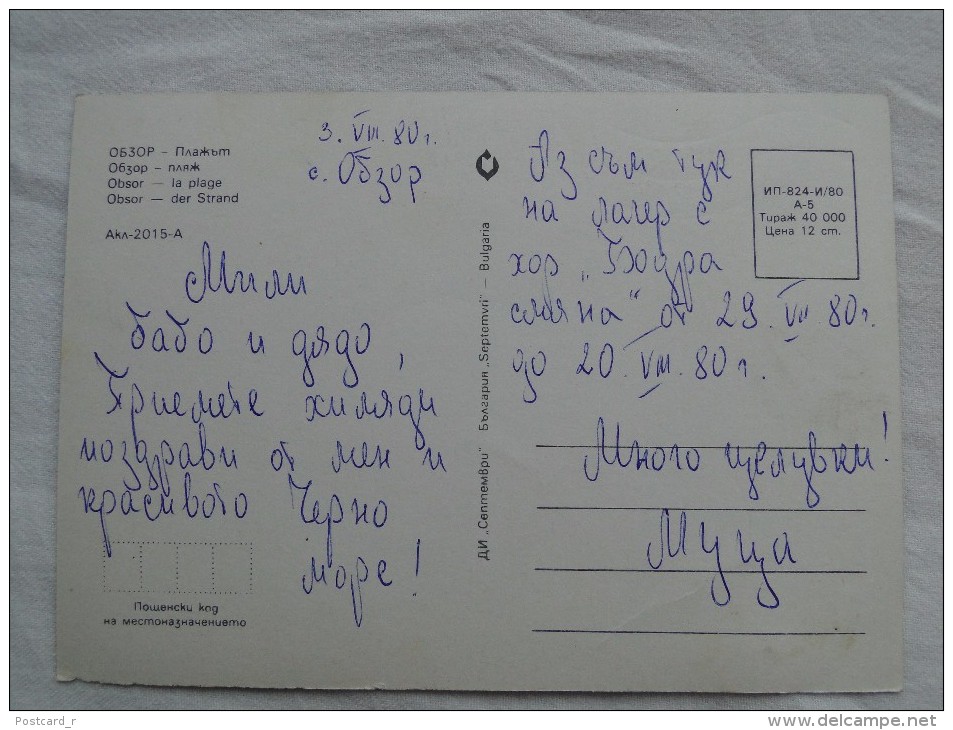 ОБЗОР – Плажът
Обзор – пляж
Obsor — la plage
Obsor — der Strand
Акл-2015-А
3. VIII. 80 г.
с. Обзор
Мили
бабо и дядо,
Приемете хиляди
поздрави от мен и
красивото Черно
море!
Пощенски код
на местоназначението
ДИ „Септември" България „Septemvri" – Bulgaria
Аз съм тук
на лагер с
хор „Бодра
смяна" от 29. VII 80 г.
до 20. VIII. 80 г.
Много целувки!
Муца
ИП-824-И/80
А-5
Тираж 40 000
Цена 12 ст.
Postcard_r
www.delcampe.net